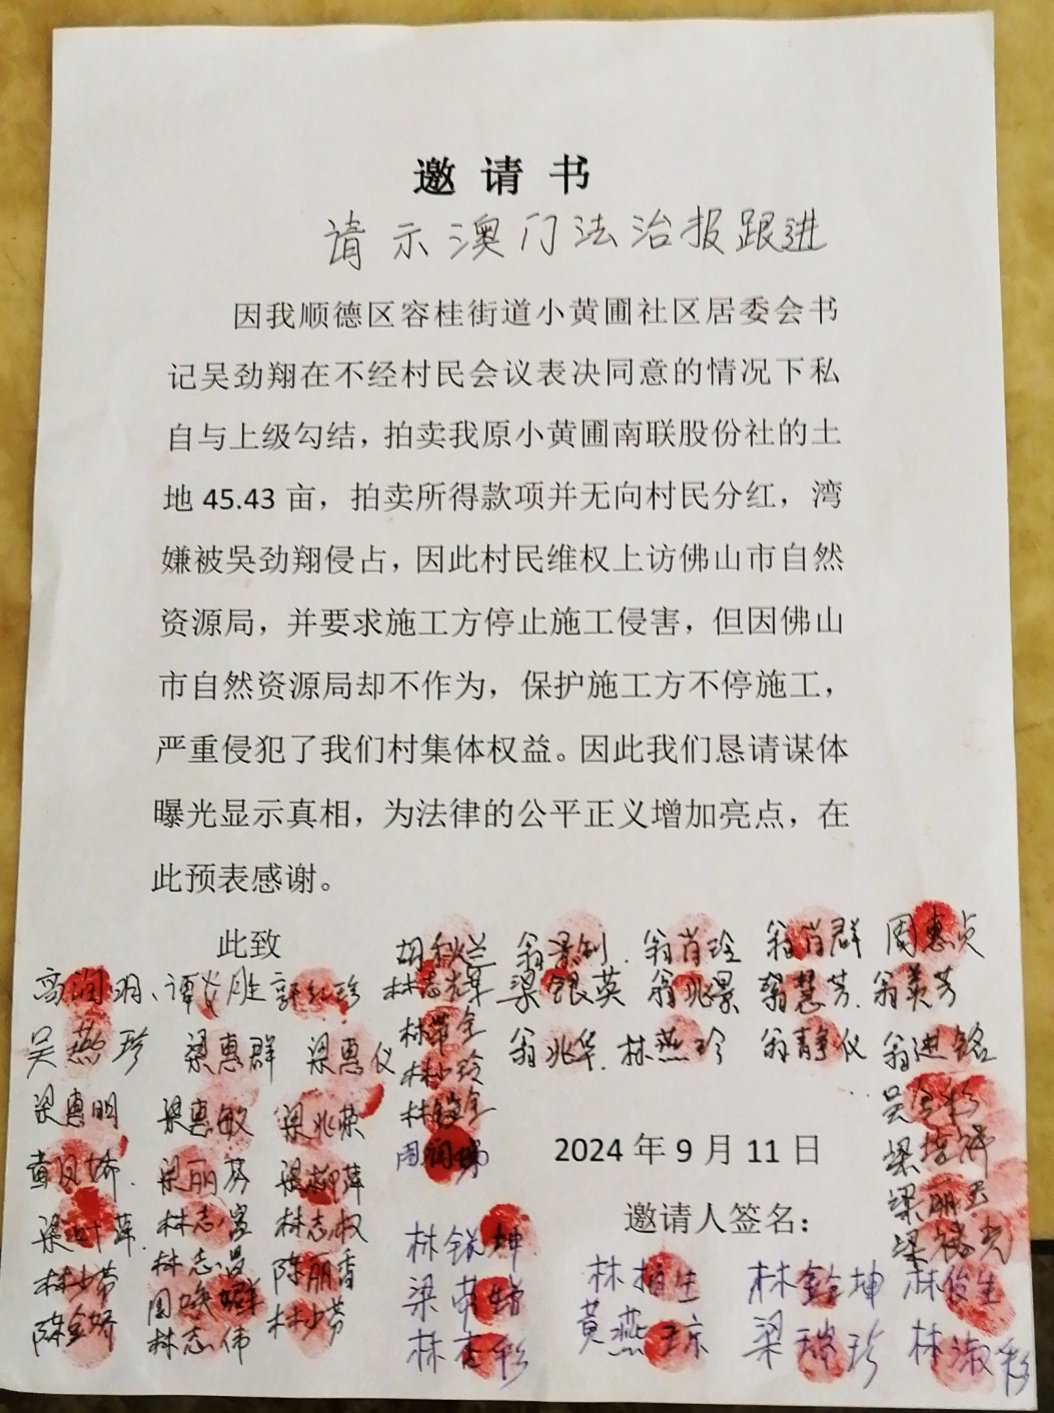 邀请书
请示澳门法治报跟进
因我顺德区容桂街道小黄圃社区居委会书
记吴劲翔在不经村民会议表决同意的情况下私
自与上级勾结，拍卖我原小黄圃南联股份社的土
地 45.43 亩，拍卖所得款项并无向村民分红，湾
嫌被吳劲翔侵占，因此村民维权上访佛山市自然
资源局，并要求施工方停止施工侵害，但因佛山
市自然资源局却不作为，保护施工方不停施工，
严重侵犯了我们村集体权益。因此我们恳请谋体
曝光显示真相，为法律的公平正义增加亮点，在
此预表感谢。
此致
胡秋兰 翁肖玲 翁肖群 周惠贞
高润明、 郭红珍 林志辉 梁银英 翁兆景 翁慧芳 翁美芳
吴燕珍 梁惠群 梁惠仪 翁兆华 林燕珍 翁静仪 翁进铭
林少玲
梁惠明 梁惠敏 梁兆荣
周润娣 2024 年 9 月 11 日
黄凤娇 梁丽芬 梁柳萍 梁培祥
邀请人签名：
梁叶萍 林志权
林少芬 陈丽香
陈金娇 林志伟 林少芳
林锐坤 林柏生 林铨坤 林俊生
黄燕琼 梁瑞珍 林淑彩
林杏彩